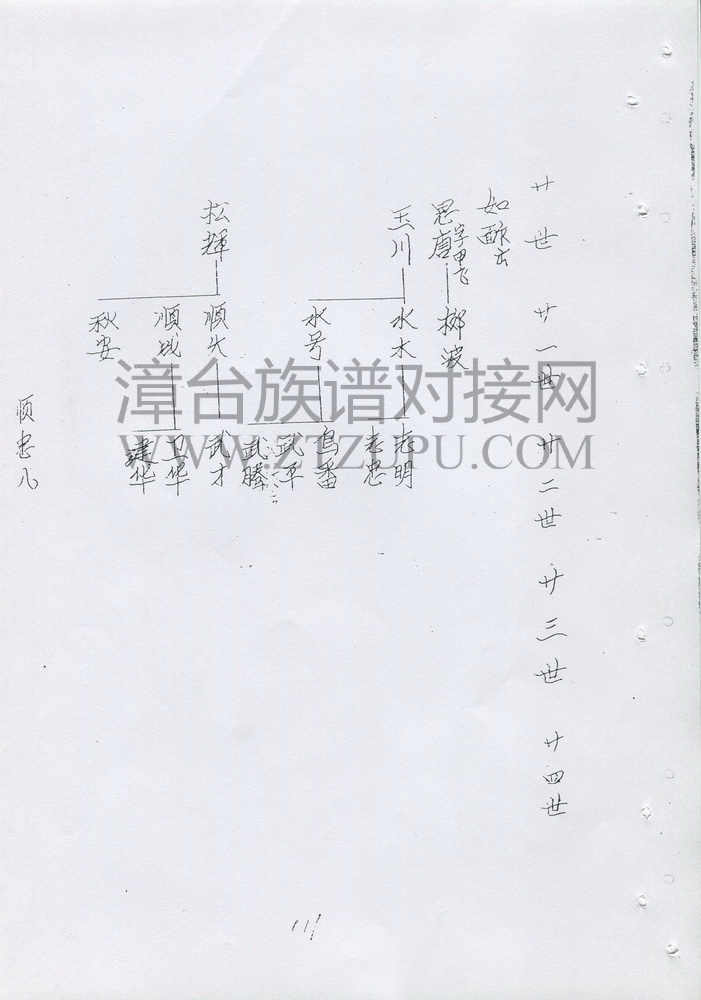 廿世 廿一世 廿二世 廿三世 廿四世
如
思唐 字甲飞
榔波
玉川
水木
志明
志忠
水号
鸟番
武平
武腾
松輝
顺火
武才
顺成
卫华
建华
秋安
顺忠
漳台族谱对接网
WWW.ZTZUPU.COM
111